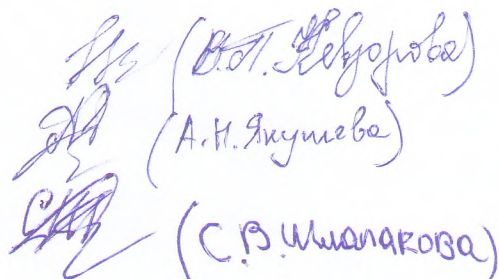 (В.П. Невзорова)
(А.Н. Якушева)
(С.В. Шлапакова)